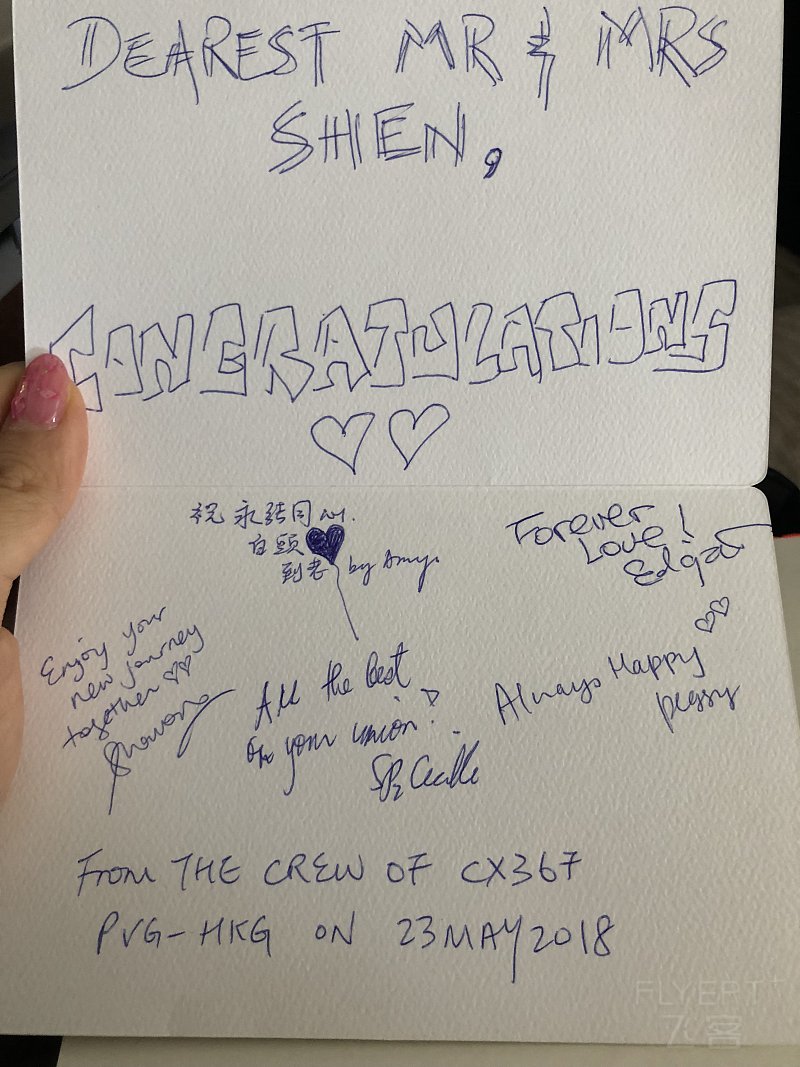 DEAREST MR & MRS
SHEN,
CONGRATULATIONS
祝 永结同心.
白头
到老 by Amy
Forever
Love!
Edgar
Enjoy your
new journey
together
All the best
on your union!
SP2 Cecille
Always Happy
Peggy
From THE CREW OF CX367
PVG-HKG ON 23MAY2018
FLYERT
飞客